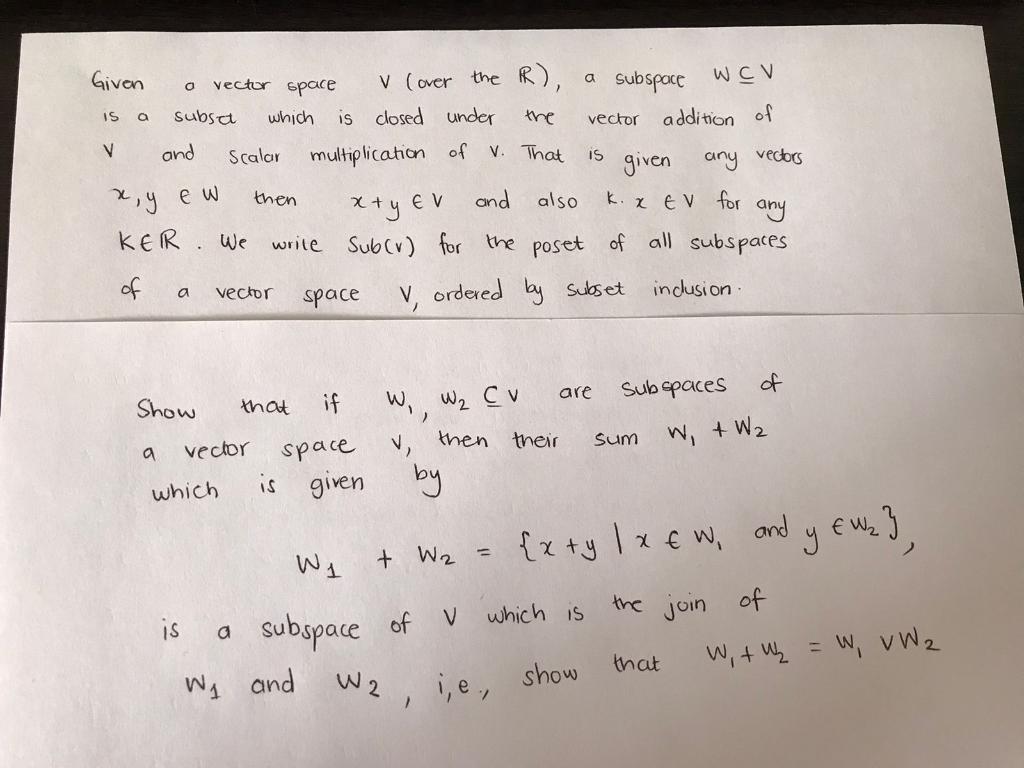 Given a vector space V (over the ℝ), a subspace W ⊆ V
is a subset which is closed under the vector addition of
V and scalar multiplication of V. That is given any vectors
x, y ∈ W then x + y ∈ V and also k. x ∈ V for any
K ∈ ℝ. We write Sub(v) for the poset of all subspaces
of a vector space V, ordered by subset inclusion.
Show that if W₁, W₂ ⊆ V are subspaces of
a vector space V, then their sum W₁ + W₂
which is given by
W₁ + W₂ = {x + y | x ∈ W₁ and y ∈ W₂},
is a subspace of V which is the join of
W₁ and W₂, i,e., show that W₁ + W₂ = W₁ ∨ W₂